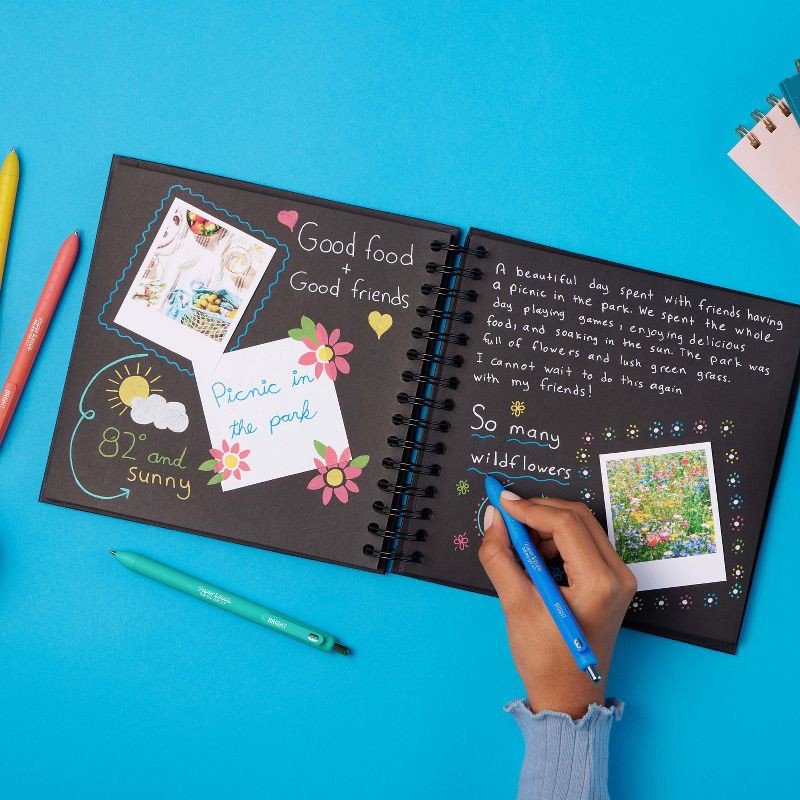 Good food
+
Good friends
Picnic in
the park
82° and
sunny
A beautiful day spent with friends having
a picnic in the park. We spent the whole
day playing games, enjoying delicious
food, and soaking in the sun. The park was
full of flowers and lush green grass.
I cannot wait to do this again
with my friends!
So many
wildflowers
BRIGHT
BRIGHT